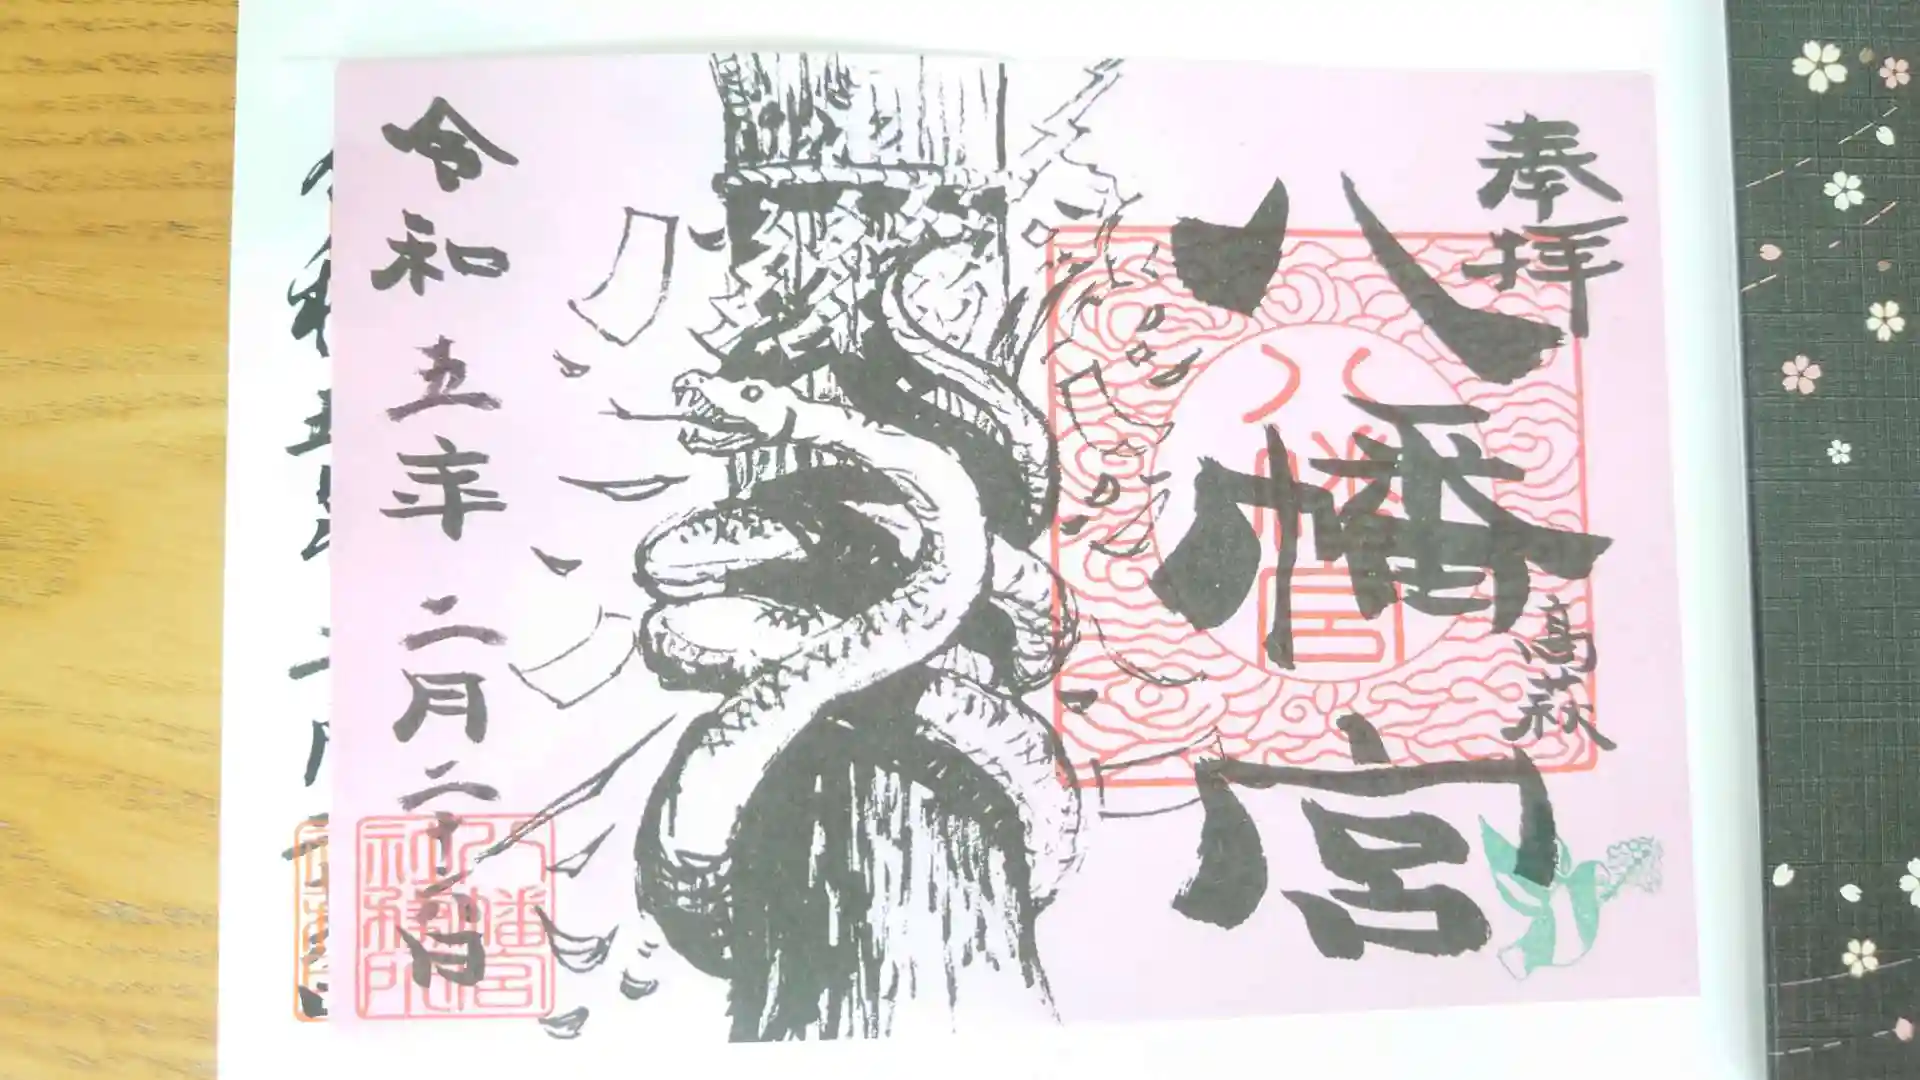 奉拝
八幡宮
八幡宮
高萩
令和五年二月二十二日
八幡宮
社務所